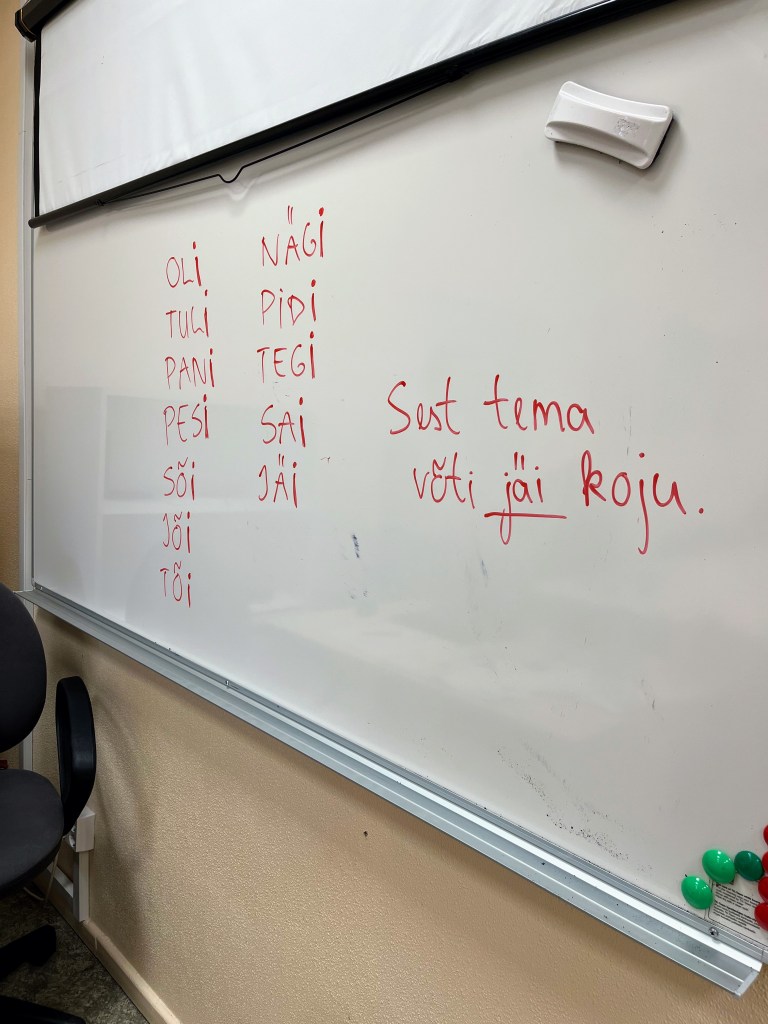 OLI
TULI
PANI
PESI
SÕI
JÕI
TÕI
NÄGI
PIDI
TEGI
SAI
JÄI
Sest tema
võti jäi koju.